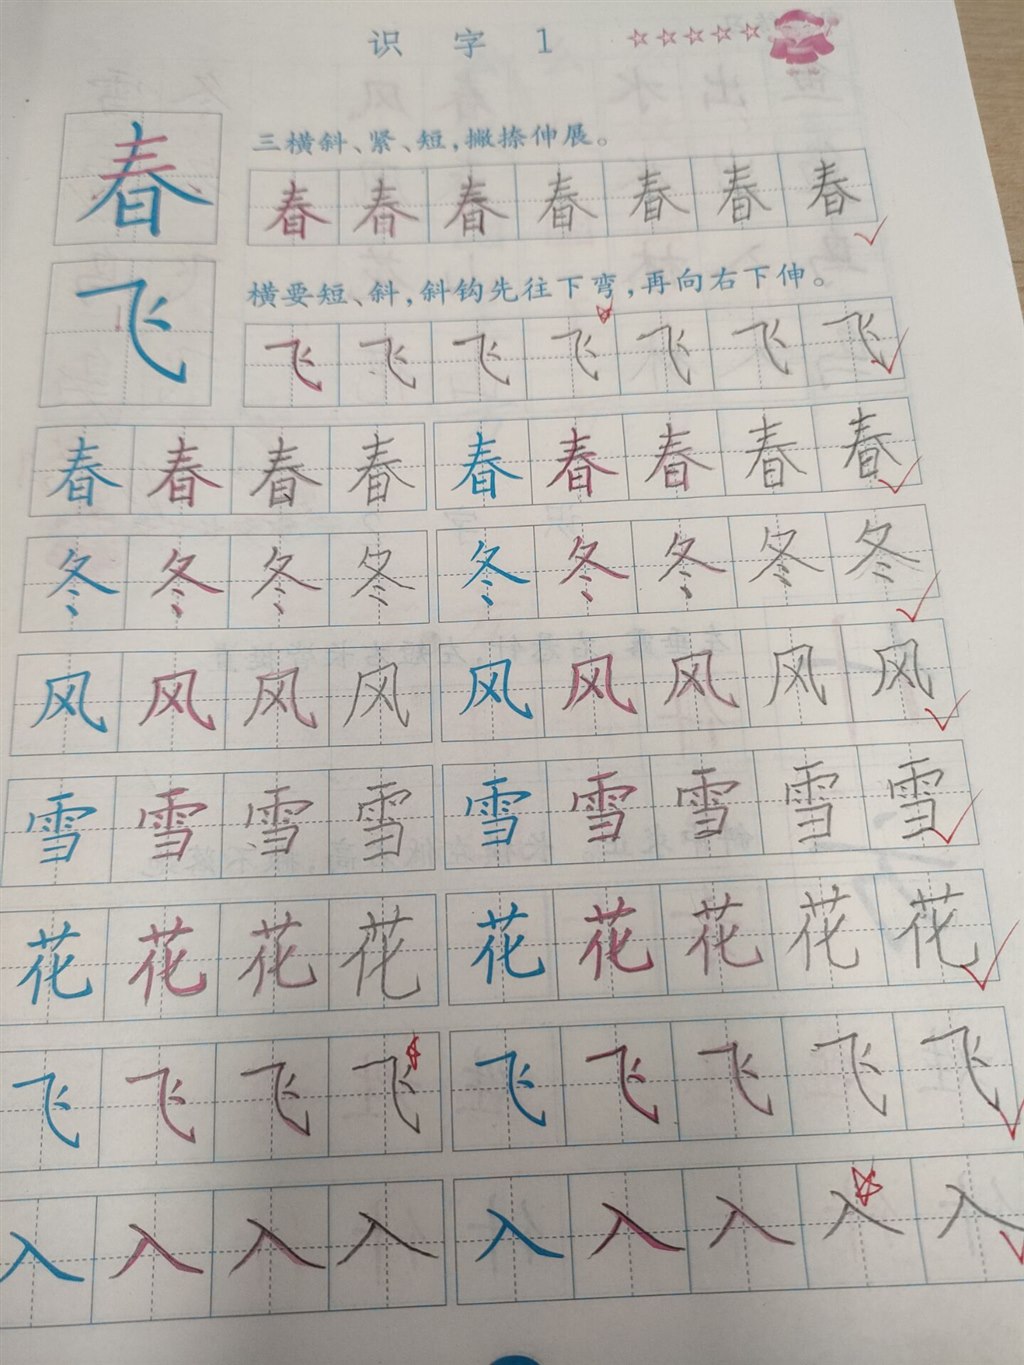 识 字 1
三横斜、紧、短，撇捺伸展。
春 春 春 春 春 春 春 春
横要短、斜，斜钩先往下弯，再向右下伸。
飞 飞 飞 飞 飞 飞 飞 飞
春 春 春 春 春 春 春 春 春
冬 冬 冬 冬 冬 冬 冬 冬 冬
风 风 风 风 风 风 风 风 风
雪 雪 雪 雪 雪 雪 雪 雪 雪
花 花 花 花 花 花 花 花 花
飞 飞 飞 飞 飞 飞 飞 飞 飞
入 入 入 入 入 入 入 入 入